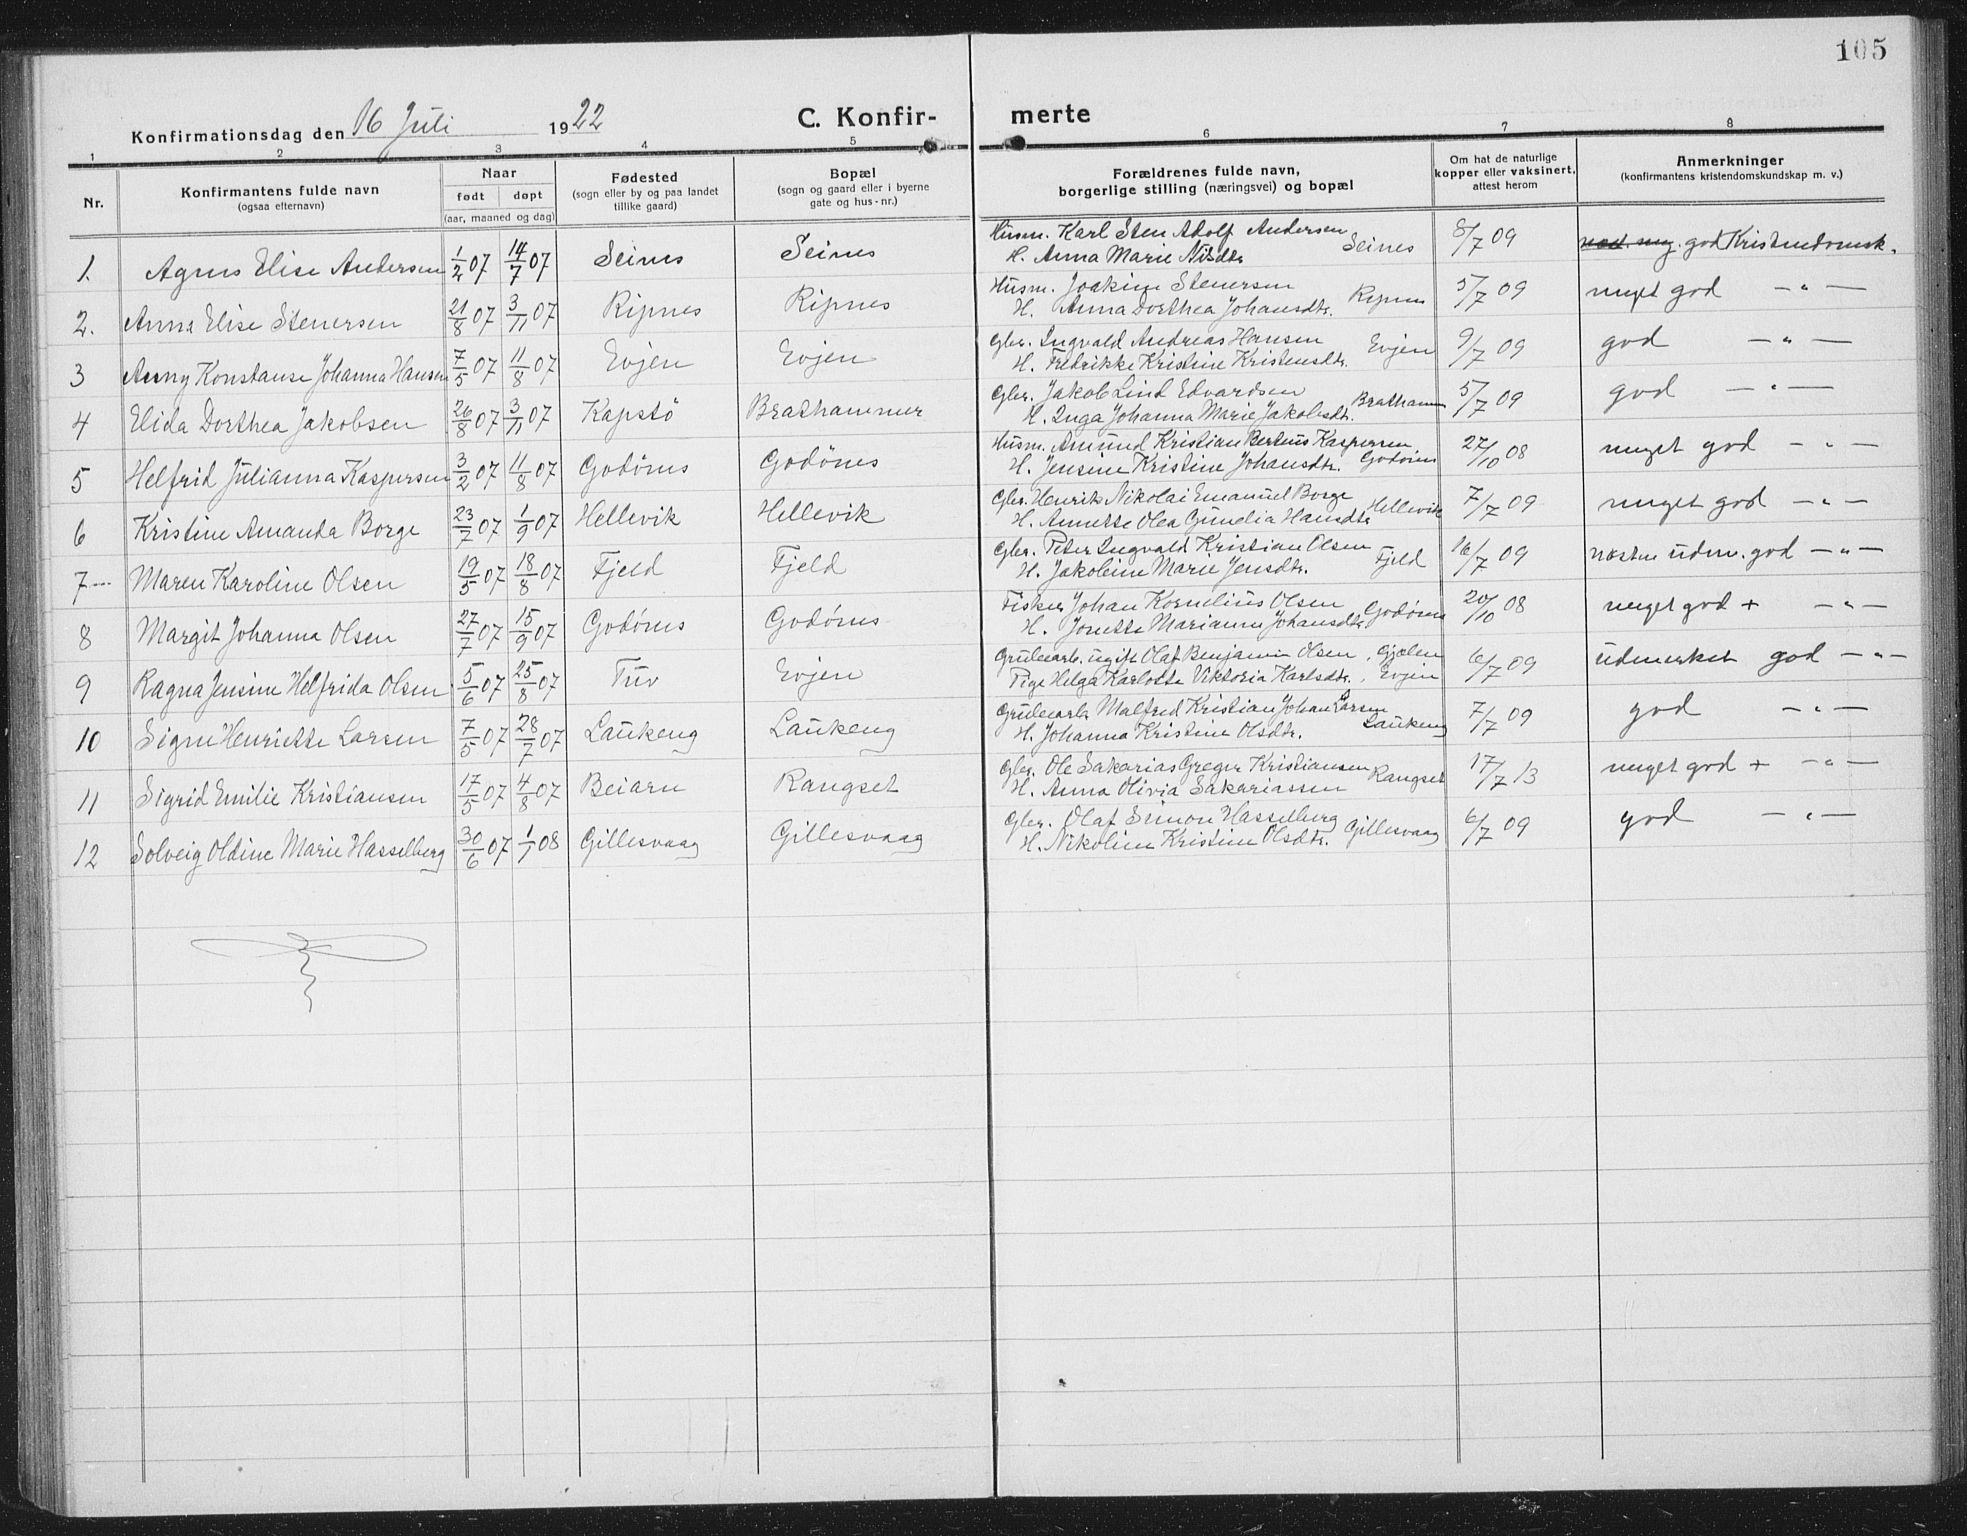 105
Konfirmationsdag den 16 Juli 1922
C. Konfir- merte
1 2 3 4 5 6 7 8
Nr.
Konfirmantens fulde navn
(ogsaa efternavn)
Naar
født døpt
(aar, maaned og dag)
Fødested
(sogn eller by og paa landet
tillike gaard)
Bopæl
(sogn og gaard eller i byerne
gate og hus-nr.)
Forældrenes fulde navn,
borgerlige stilling (næringsvei) og bopæl
Om hat de naturlige
kopper eller vaksinert,
attest herom
Anmerkninger
(konfirmantens kristendomskundskap m. v.)
1. Agnes Elise Andersen 1/2 07 14/7 07 Seines Seines Husm. Karl Sten Adolf Andersen Seines 8/7 09 god Kristendomsk.
H. Anna Marie Nilsdtr.
2. Anna Elise Stenersen 21/8 07 3/11 07 Ripnes Ripnes Husm. Joakim Stenersen Ripnes 5/7 09 meget god — „ —
H. Anna Dorthea Johansdtr.
3 Anny Konstanse Johanna Hansen 7/5 07 11/8 07 Evjen Evjen Gbr. Ingvald Andreas Hansen Evjen 9/7 09 god — „ —
H. Fredrikke Kristine Kristensdtr.
4 Elida Dorthea Jakobsen 26/8 07 3/11 07 Kapstö Brathammer Gbr. Jakob Lind Edvardsen Brathamm 5/7 09 god — „ —
H. Inga Johanna Marie Jakobsdtr.
5 Helfrid Julianna Kaspersen 3/2 07 11/8 07 Godønes Godønes Husm. Amund Kristian Berteus Kaspersen 27/10 08 meget god — „ —
H. Jensine Kristine Johansdtr. Godønes
6 Kristine Amanda Borge 23/7 07 1/9 07 Hellevik Hellevik Gbr. Henrik Nikolai Emanuel Borge Hellevik 7/7 09 meget god — „ —
H. Annette Olea Gundia Hansdtr.
7 Maren Karoline Olsen 19/5 07 18/8 07 Fjeld Fjeld Gbr. Peter Ingvald Kristian Olsen Fjeld 16/7 09 næsten udm. god — „ —
H. Jakobine Marie Jensdtr.
8 Margit Johanna Olsen 27/7 07 15/9 07 Godønes Godønes Fisker Johan Kornelius Olsen Godønes 20/10 08 meget god + — „ —
H. Jonette Marianne Johansdtr.
9 Ragna Jensine Helfrida Olsen 5/6 07 25/8 07 Tuv Evjen Grubearb. ugift Olaf Benjamin Olsen, Gjælen 6/7 09 udmerket god — „ —
Pige Helga Karlotte Viktoria Karlsdtr., Evjen
10 Signe Henriette Larsen 7/5 07 28/7 07 Laukeng Laukeng Grubearb. Malfred Kristian Johan Larsen Laukeng 7/7 09 god — „ —
H. Johanna Kristine Olsdtr.
11 Sigrid Emilie Kristiansen 17/5 07 4/8 07 Beiarn Rangset Gbr. Ole Sakarias Greger Kristiansen Rangset 17/7 13 meget god + — „ —
H. Anna Olivia Sakariassen
12 Solveig Oldine Marie Hasselberg 30/6 07 1/1 08 Gillesvaag Gillesvaag Gbr. Olaf Simon Hasselberg Gillesvaag 6/7 09 god — „ —
H. Nikoline Kristine Olsdtr.